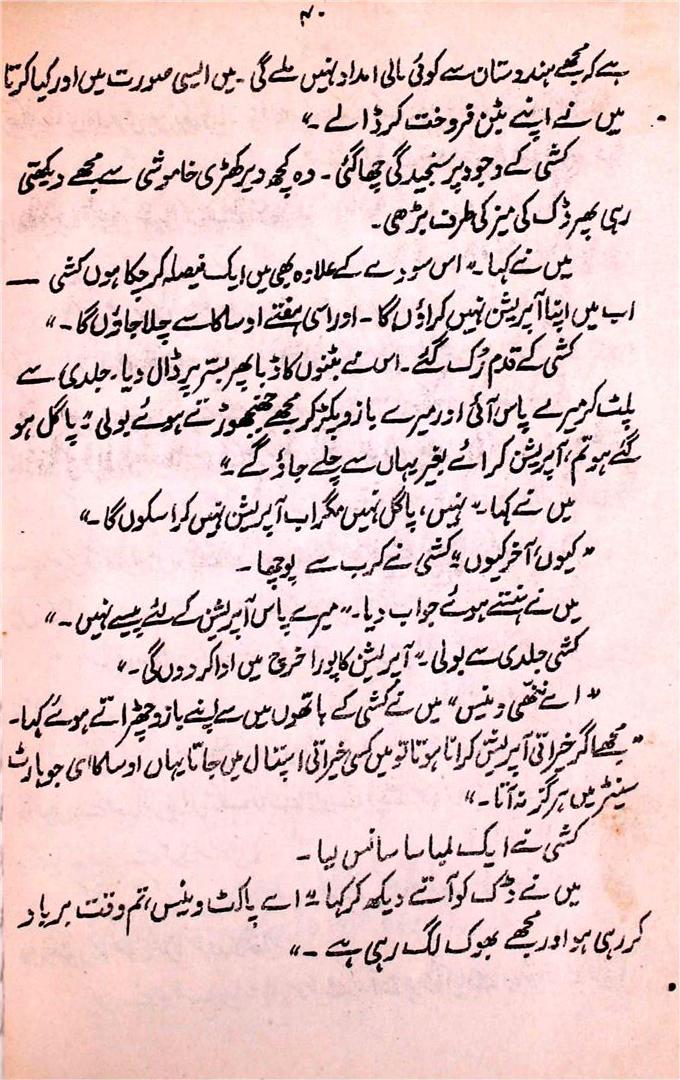 ۷۰
ہے کہ مجھے ہندوستان سے کوئی مالی امداد نہیں ملے گی۔ میں ایسی صورت میں اور کیا کرتا
میں نے اپنے بٹن فروخت کر ڈالے۔"
کشی کے وجود پر سنجیدگی چھا گئی۔ وہ کچھ دیر کھڑی خاموشی سے مجھے دیکھتی
رہی پھر ڈک کی میز کی طرف بڑھی۔
میں نے کہا۔ "اس سودے کے علاوہ بھی میں ایک فیصلہ کر چکا ہوں کشی ــــ
اب میں اپنا آپریشن نہیں کراؤں گا۔ اور اسی ہفتے اوساکا سے چلا جاؤں گا۔"
کشی کے قدم رُک گئے۔ اس نے بٹنوں کا ڈبا پھر بستر پر ڈال دیا۔ جلدی سے
پلٹ کر میرے پاس آئی اور میرے بازو پکڑ کر مجھے جھنجھوڑتے ہوئے بولی "پاگل ہو
گئے ہو تم، آپریشن کرائے بغیر یہاں سے چلے جاؤ گے۔"
میں نے کہا۔ "نہیں، پاگل نہیں مگر اب آپریشن نہیں کرا سکوں گا۔"
"کیوں، آخر کیوں" کشی نے کرب سے پوچھا۔
میں نے ہنستے ہوئے جواب دیا۔ "میرے پاس آپریشن کے لئے پیسے نہیں۔"
کشی جلدی سے بولی۔ "آپریشن کا پورا خرچ میں ادا کر دوں گی۔"
"اے ننھّی وینس" میں نے کشی کے ہاتھوں میں سے اپنے بازو چھڑاتے ہوئے کہا۔
"مجھے اگر خیراتی آپریشن کرانا ہوتا تو میں کسی خیراتی اسپتال میں جاتا یہاں اوساکا ای جو ہارٹ
سینٹر میں ہرگز نہ آتا۔"
کشی نے ایک لمبا سا سانس لیا۔
میں نے ڈک کو آتے دیکھ کر کہا "اے پاکٹ وینس، تم وقت برباد
کر رہی ہو اور مجھے بھوک لگ رہی ہے۔"